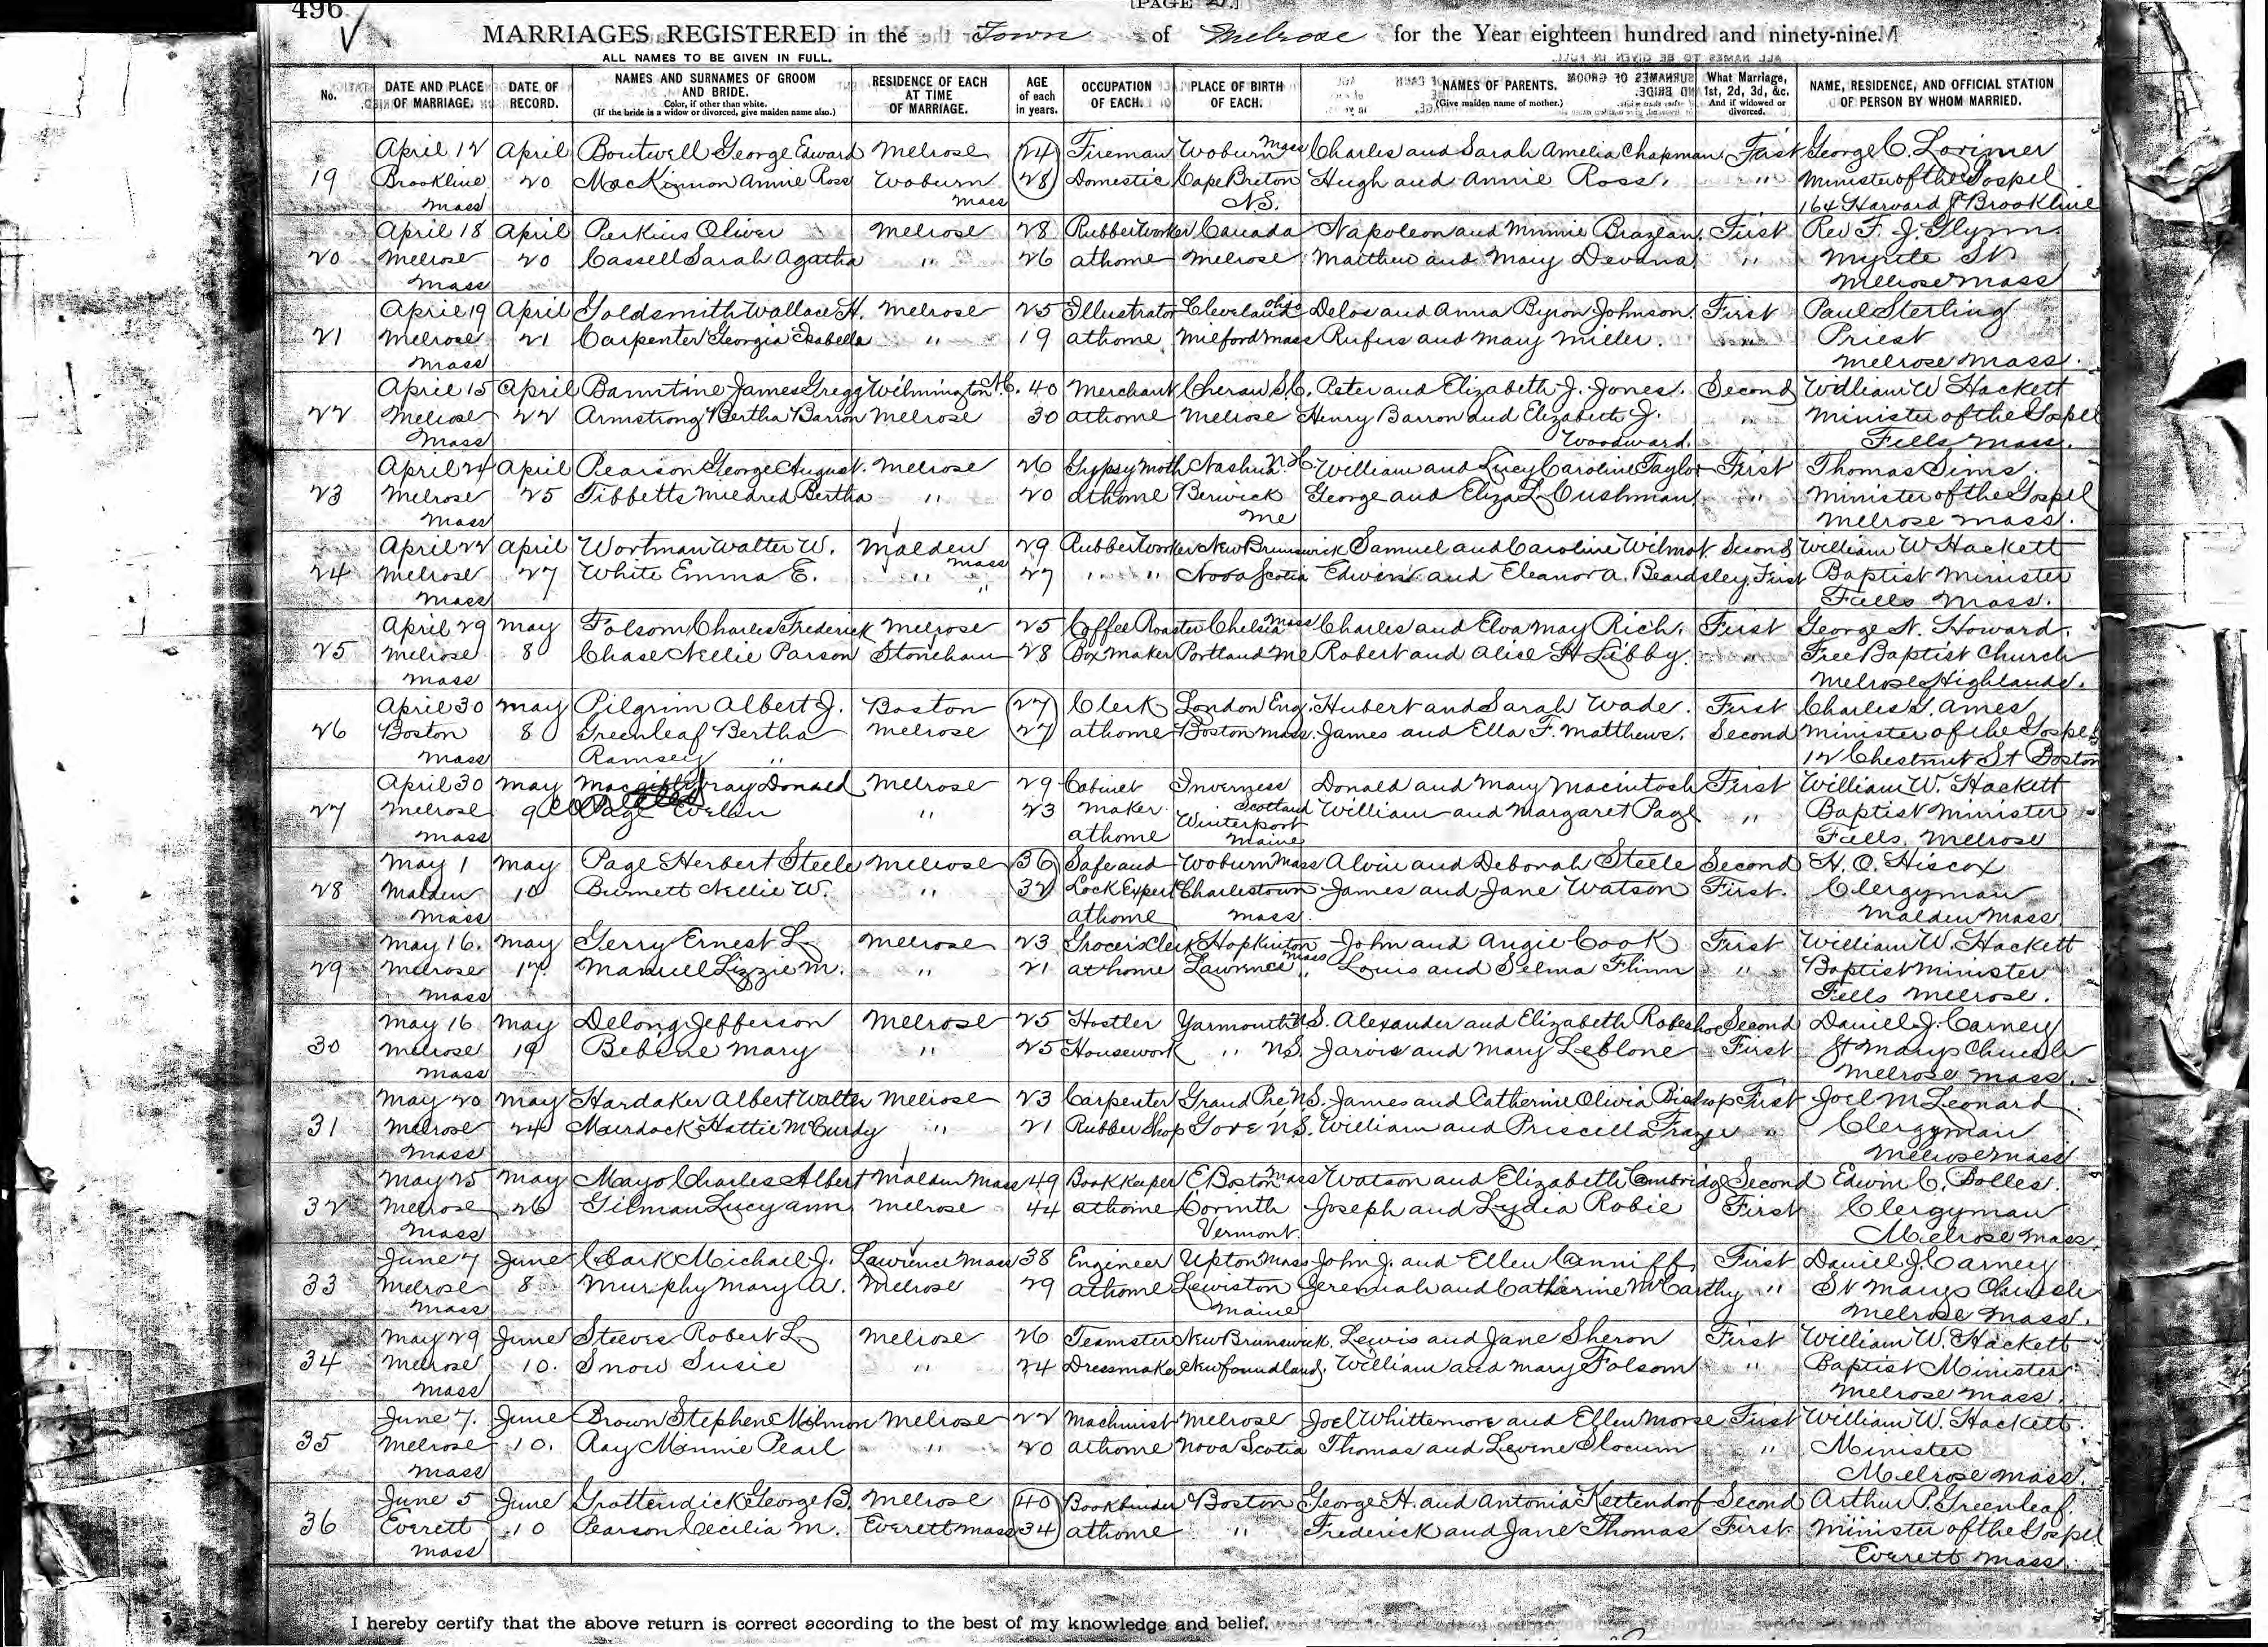 496
[PAGE 27.]
MARRIAGES REGISTERED in the Town of Melrose for the Year eighteen hundred and ninety-nine.
ALL NAMES TO BE GIVEN IN FULL.
No. DATE AND PLACE OF MARRIAGE. DATE OF RECORD. NAMES AND SURNAMES OF GROOM AND BRIDE. Color, if other than white. (If the bride is a widow or divorced, give maiden name also.) RESIDENCE OF EACH AT TIME OF MARRIAGE. AGE of each in years. OCCUPATION OF EACH. PLACE OF BIRTH OF EACH. NAMES OF PARENTS. (Give maiden name of mother.) What Marriage, 1st, 2d, 3d, &c. And if widowed or divorced. NAME, RESIDENCE, AND OFFICIAL STATION OF PERSON BY WHOM MARRIED.
April 12 April Boutwell George Edward Melrose 24 Fireman Woburn Mass Charles and Sarah Amelia Chapman First George C. Lorimer
19 Brookline 20 MacKinnon Annie Ross Woburn 28 Domestic Cape Breton Hugh and Annie Ross. " Minister of the Gospel
Mass Mass N.S. 164 Harvard St Brookline
April 18 April Perkins Oliver Melrose 28 Rubber Worker Canada Napoleon and Minnie Brazeau. First Rev F. J. Glynn.
20 Melrose 20 Cassell Sarah Agatha " 26 at home Melrose Matthew and Mary Devana " Myrtle St
Mass Melrose Mass
April 19 April Goldsmith Wallace H. Melrose 25 Illustrator Cleveland Ohio Delos and Anna Byron Johnson. First Paul Sterling
21 Melrose 21 Carpenter Georgia Isabella " 19 at home Milford Mass Rufus and Mary Miller. " Priest
Mass Melrose Mass.
April 15 April James Gregg Wilmington N.C. 40 Merchant Cheraw S.C. Peter and Elizabeth J. Jones. Second William W Hackett
22 Melrose 22 Armstrong Bertha Barron Melrose 30 at home Melrose Henry Barron and Elizabeth J. " Minister of the Gospel
Mass Woodward. Fells Mass.
April 24 April Pearson George August. Melrose 26 Gypsy Moth Nashua N.H. William and Lucy Caroline Taylor First Thomas Sims.
23 Melrose 25 Tibbetts Mildred Bertha " 20 at home Berwick George and Eliza L. Cushman " Minister of the Gospel
Mass Me Melrose Mass.
April 22 April Wortman Walter W. Malden Mass 29 Rubber Worker New Brunswick Samuel and Caroline Wilmot Second William W Hackett
24 Melrose 27 White Emma E. " " 27 " " Nova Scotia Edwin and Eleanor A. Beardsley. First Baptist Minister
Mass Fells Mass.
April 29 May Folsom Charles Frederick Melrose 25 Coffee Roaster Chelsea Mass Charles and Elva May Rich. First George N. Howard.
25 Melrose 8 Chase Nellie Parson Stoneham 28 Box Maker Portland Me Robert and Alice H Libby. " Free Baptist Church
Mass Melrose Highlands.
April 30 May Pilgrim Albert J. Boston 27 Clerk London Eng. Hubert and Sarah Wade. First Charles G. Ames
26 Boston 8 Greenleaf Bertha Melrose 27 at home Boston Mass. James and Ella F. Matthews. Second Minister of the Gospel
Mass Ramsey " 12 Chestnut St Boston
April 30 May Donald Melrose 29 Cabinet Inverness Donald and Mary Macintosh First William W. Hackett
27 Melrose 9 Page " 23 Maker Scotland William and Margaret Page " Baptist Minister
Mass at home Winterport Maine Fells, Melrose
May 1 May Page Herbert Steele Melrose 36 Safe and Woburn Mass Alvin and Deborah Steele Second H. O. Hiscox
28 Malden 10 Burnett Nellie W. " 32 Lock Expert Charlestown James and Jane Watson First. Clergyman
Mass at home Mass. Malden Mass
May 16. May Gerry Ernest L. Melrose 23 Grocer's Clerk Hopkinton Mass John and Angie Cook First William W. Hackett
29 Melrose 17. Manuel Lizzie M. " 21 at home Lawrence " Louis and Selma Flinn " Baptist Minister
Mass Fells Melrose.
May 16 May Delong Jefferson Melrose 25 Hostler Yarmouth N.S. Alexander and Elizabeth Second Daniel J. Carney
30 Melrose 19 Mary " 25 Housework " N.S. Jarvis and Mary Leblone First St Marys Church
Mass Melrose Mass.
May 20 May Hardaker Albert Walter Melrose 23 Carpenter Grand Pré N.S. James and Catherine Olivia Bishop First Joel M Leonard
31 Melrose 24 Murdock Hattie McCurdy " 21 Rubber Shop Gore N.S. William and Priscilla Frazer " Clergyman
Mass Melrose Mass
May 25 May Mayo Charles Albert Malden Mass 49 Bookkeeper E. Boston Mass Watson and Elizabeth Cambridge Second Edwin C. Bolles.
32 Melrose 26 Gilman Lucy Ann Melrose 44 at home Corinth Joseph and Lydia Robie First Clergyman
Mass Vermont. Melrose Mass.
June 7 June Clark Michael J. Lawrence Mass 38 Engineer Upton Mass John J. and Ellen Canniff First Daniel J. Carney
33 Melrose 8 Murphy Mary A. Melrose 29 at home Lewiston Jeremiah and Catherine McCarthy " St Marys Church
Mass Maine Melrose Mass.
May 29 June Steeves Robert L. Melrose 26 Teamster New Brunswick. Lewis and Jane Sheron First William W. Hackett
34 Melrose 10. Snow Susie " 24 Dressmaker Newfoundland. William and Mary Folsom " Baptist Minister
Mass Melrose Mass.
June 7. June Brown Stephen Melrose 22 Machinist Melrose Joel Whittemore and Ellen Morse First William W. Hackett.
35 Melrose 10. Ray Minnie Pearl " 20 at home Nova Scotia Thomas and Levine Slocum " Minister
Mass Melrose Mass.
June 5 June Grattendick George B. Melrose 40 Bookbinder Boston George H. and Antonia Kettendorf Second Arthur P. Greenleaf
36 Everett 10 Pearson Cecilia M. Everett Mass 34 at home " Frederick and Jane Thomas First Minister of the Gospel
Mass Everett Mass.
I hereby certify that the above return is correct according to the best of my knowledge and belief.